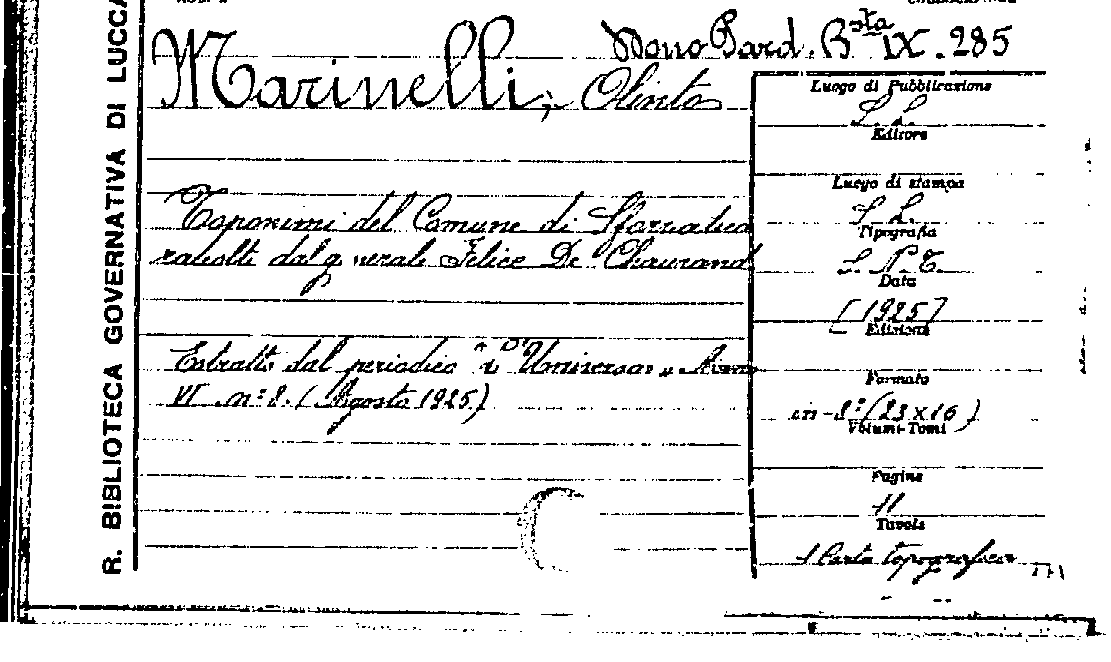 R. BIBLIOTECA GOVERNATIVA DI LUCCA
Mono Pard. Bsta IX. 285
Marinelli, Olinto
Luogo di Pubblicazione
S. L.
Editore
Luogo di stampa
S. L.
Tipografia
S. N. T.
Data
[1925]
Edizione
Formato
in-8º (23 x 16)
Volumi-Tomi
Pagine
11
Tavole
1 Carta topografica
Toponimi del Comune di
raccolti dal generale Felice De Chaurand
Estratto dal periodico "L'Universo" Anno
VI n: 8. (Agosto 1925)